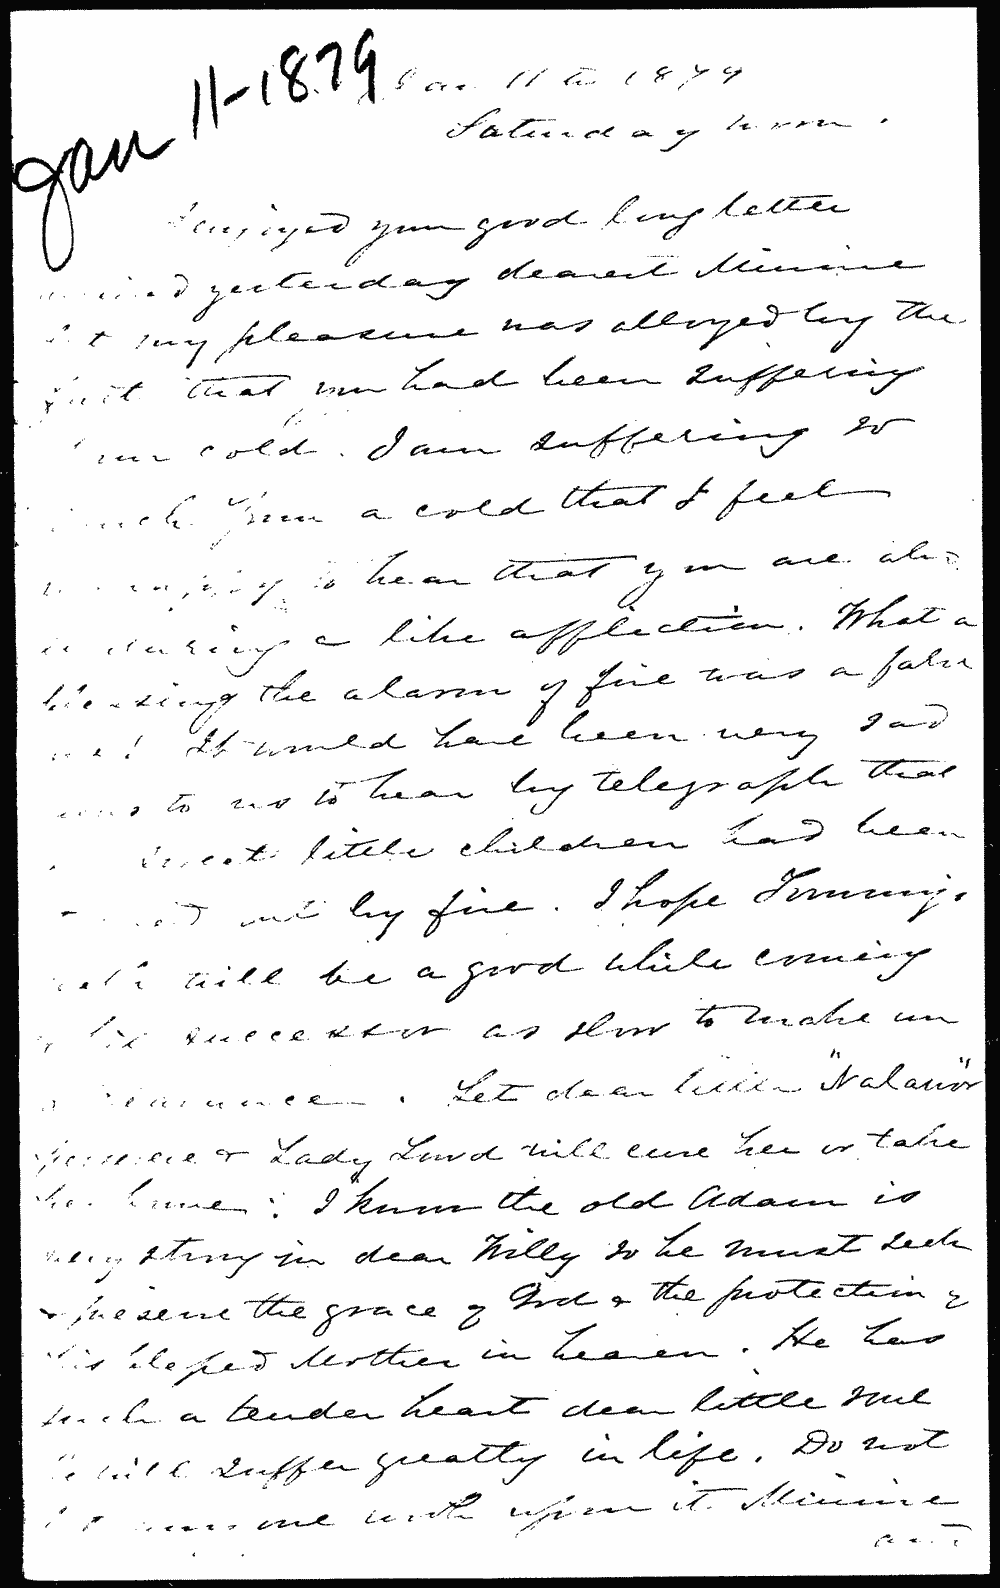 Jan 11-1879
Jan 11th 1879
Saturday noon.
I enjoyed your good long letter
received yesterday dearest Minnie
but my pleasure was alloyed by the
fact that you had been suffering
from cold. I am suffering so
much from a cold that I feel
to hear that you are also
enduring a like affliction. What a
blessing the alarm of fire was a false
one! It would have been very sad
news to us to hear by telegraph that
sweet little children had been
out by fire. I hope Tommy's
will be a good while coming
& his successor as slow to make an
appearance. Let dear little
persevere & Lady Lourd will cure her or take
her home. I know the old Adam is
very strong in dear Willy so he must seek
& preserve the grace of God & the protection of
his blessed Mother in heaven. He has
such a tender heart dear little soul
he will suffer greatly in life. Do not
let any one work upon it Minnie
and